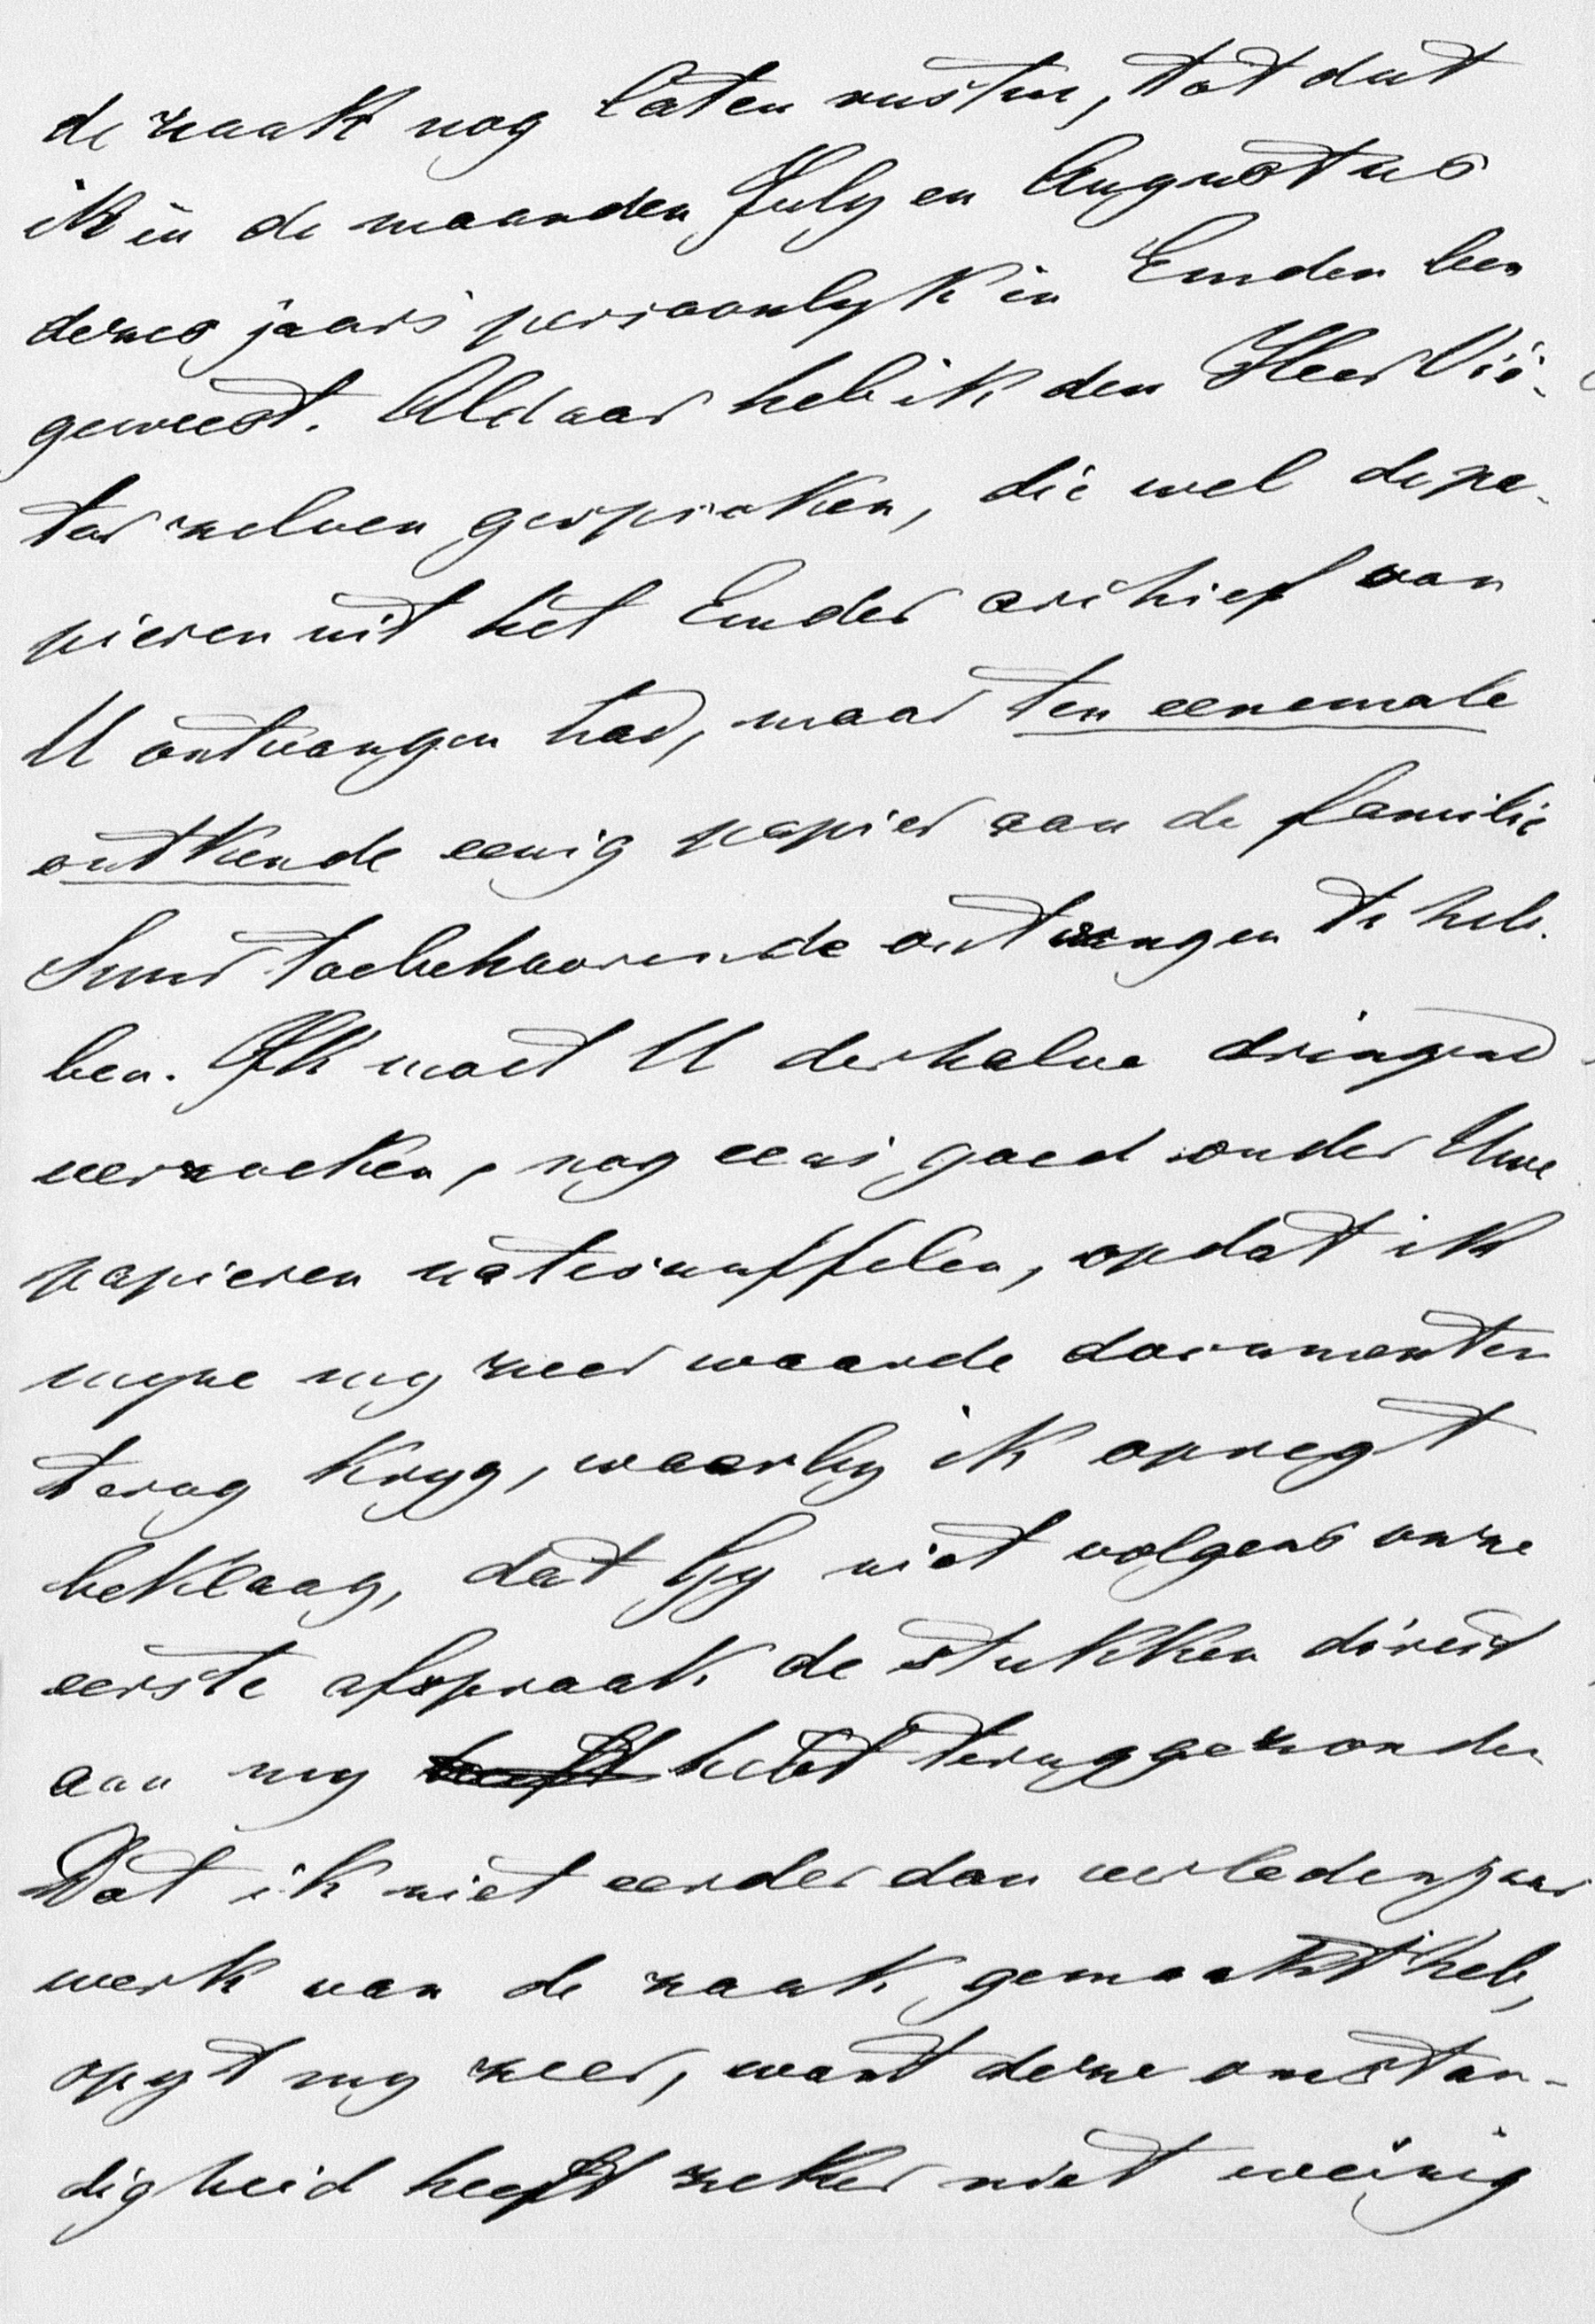 de zaak nog laten rusten, tot dat
ik in de maanden July en Augustus
dezes jaars persoonlyk in Emden ben
geweest. Aldaar heb ik den Heer Vië-
tor zelven gesproken, die wel de pa-
pieren uit het Emder archief van
U ontvangen had, maar ten eenemale
ontkende eenig papier aan de familie
Suur toebehoorende ontvangen te heb-
ben. Ik moet U derhalve dringend
verzoeken, nog eens goed onder Uwe
papieren natesnuffelen, opdat ik
myne my zeer waarde documenten
terug kryg, waarby ik opregt
beklaag, dat Gy niet volgens onze
eerste afspraak de stukken direct
aan my hebt teruggezonden
Dat ik niet eerder dan verleden jaar
werk van de zaak gemaakt heb,
spyt my zeer, want deze omstan-
digheid heeft zeker niet weinig